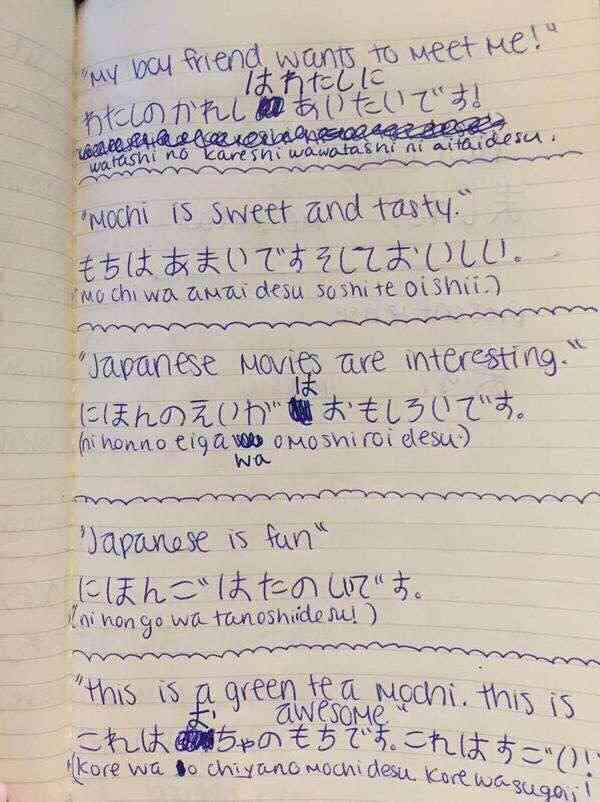 "My boy friend wants to meet me!"
はわたしに
わたしのかれし あいたいです!
watashi no kareshi wawatashi ni aitaidesu.
"Mochi is sweet and tasty."
もちはあまいですそしておいしい。
(mochi wa amai desu soshite oishii.)
"Japanese movies are interesting."
は
にほんのえいが おもしろいです。
(ni honno eiga omoshiroi desu.)
wa
"Japanese is fun"
にほんごはたのしいです。
(ni hon go wa tanoshiidesu!)
"this is a green tea mochi. this is
お awesome"
これは ちゃのもちです。これはすごい!
(kore wa o chiyano mochi desu kore wa sugoii!